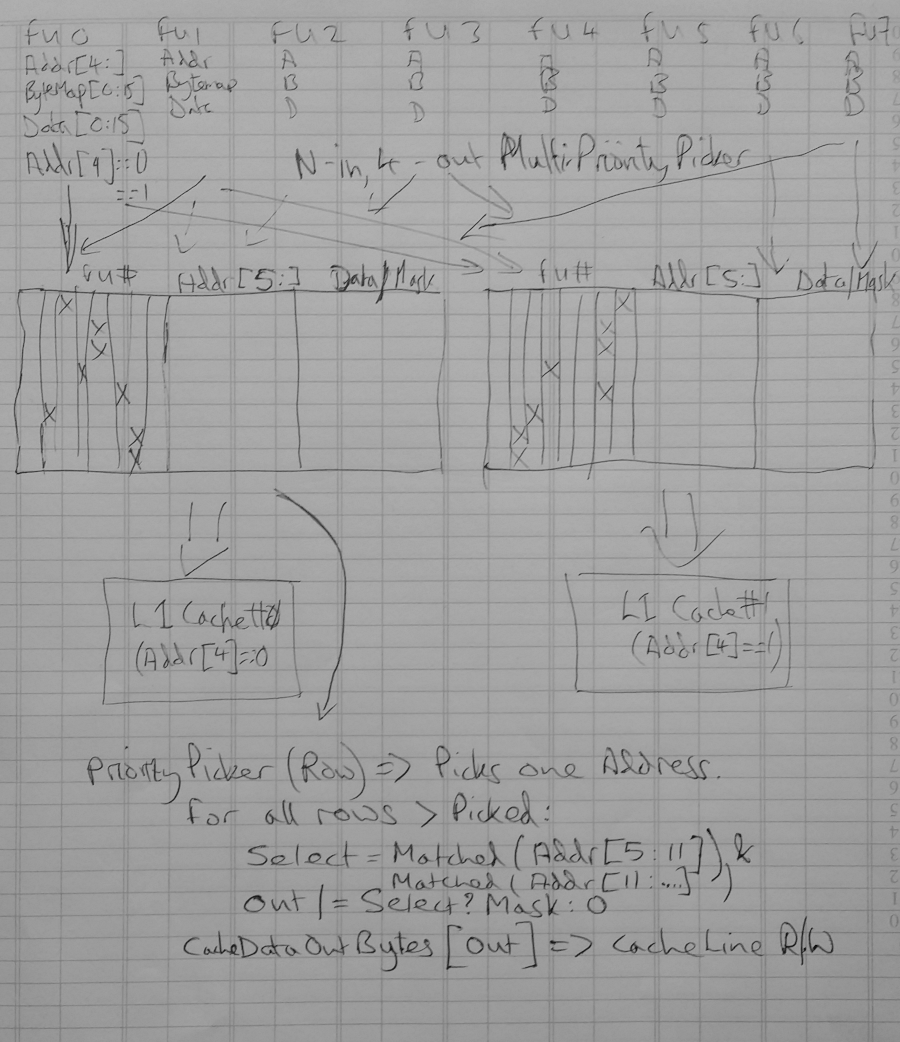 fu0 fu1 fu2 fu3 fu4 fu5 fu6 fu7
Addr[4:] Addr A A A A A A
ByteMap[0:15] Bytemap B B B B B B
Data[0:15] Data D D D D D D
Addr[4]==0 N-in, 4-out MultiPriorityPicker
==1
fu# Addr[5:] Data/Mask fu# Addr[5:] Data/Mask
L1 Cache#0 L1 Cache#1
(Addr[4]==0 (Addr[4]==1)
PriorityPicker (Row) => Picks one Address.
for all rows > Picked:
Select = Matched (Addr[5:11]) &
Matched (Addr[11:....])
Out |= Select? Mask: 0
CacheDataOutBytes [Out] => CacheLine R/W